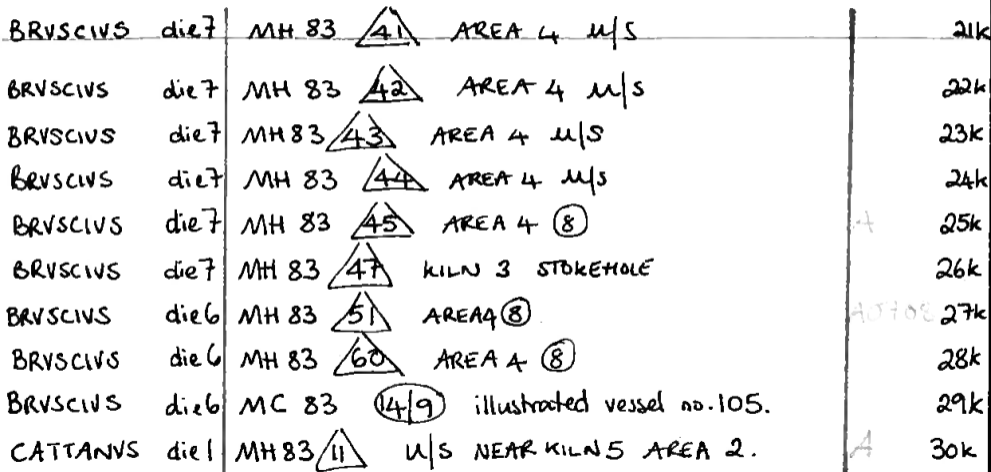 BRVSCIVS die7 MH 83 41 AREA 4 u/s 21k
BRVSCIVS die7 MH 83 42 AREA 4 u/s 22k
BRVSCIVS die7 MH 83 43 AREA 4 u/s 23k
BRVSCIVS die7 MH 83 44 AREA 4 u/s 24k
BRVSCIVS die7 MH 83 45 AREA 4 8 25k
BRVSCIVS die7 MH 83 47 KILN 3 STOKEHOLE 26k
BRVSCIVS die6 MH 83 51 AREA4 8 27k
BRVSCIVS die6 MH 83 60 AREA 4 8 28k
BRVSCIVS die6 MC 83 14/9 illustrated vessel no.105. 29k
CATTANVS die1 MH83 11 U/S NEAR KILN 5 AREA 2. 30k